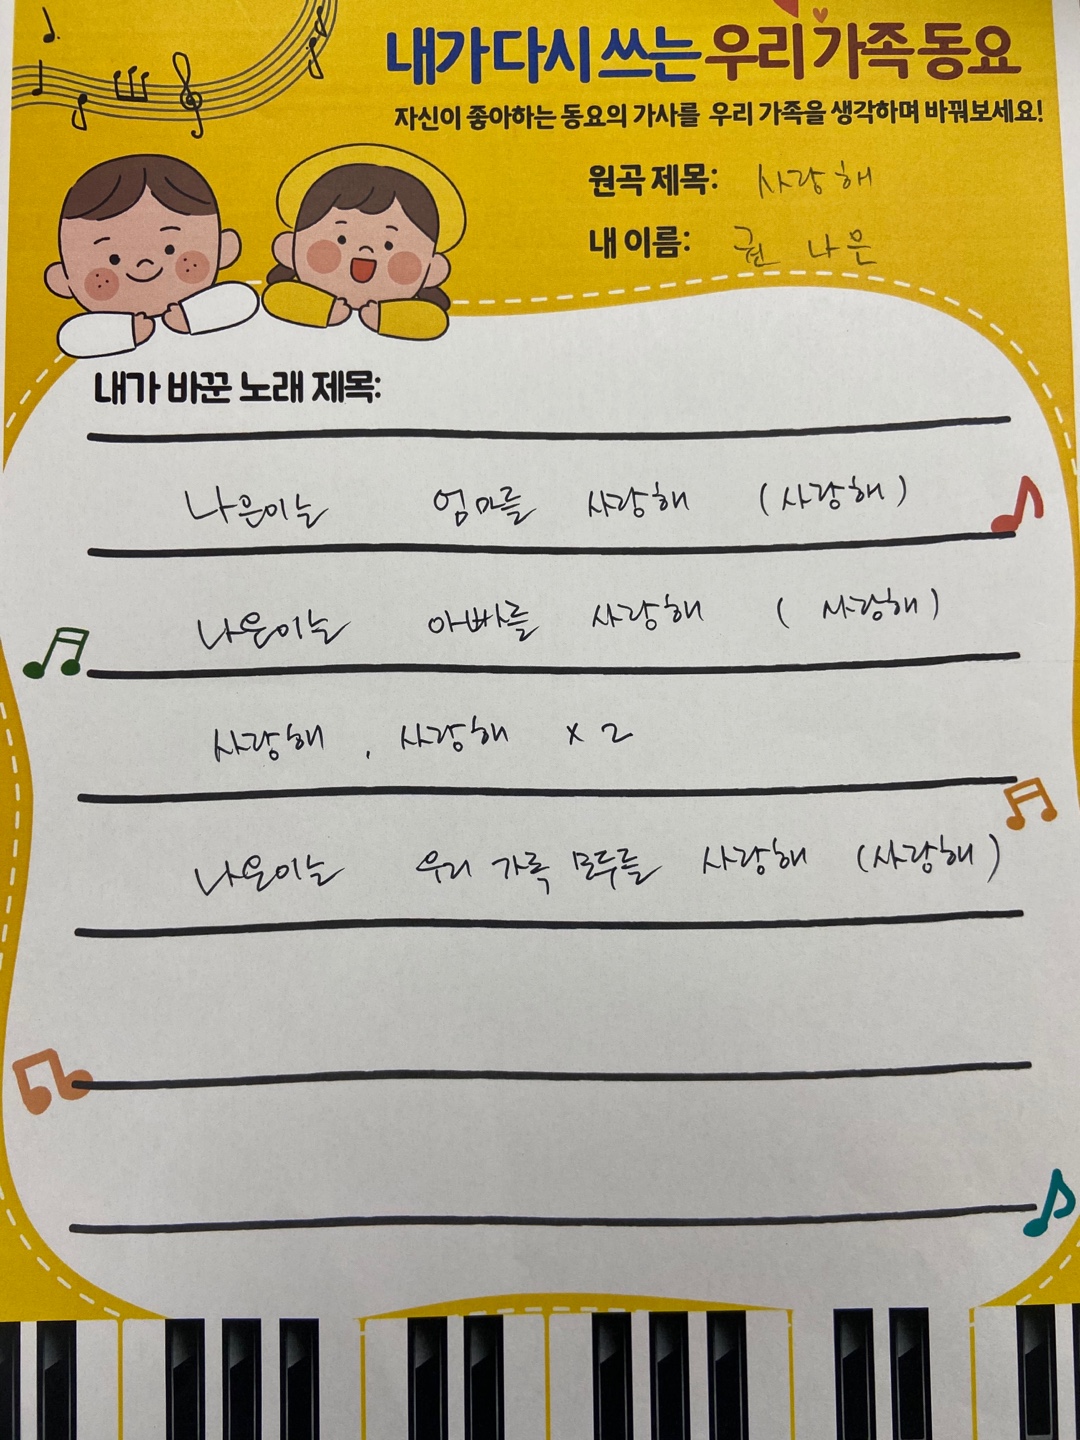 내가 다시 쓰는 우리 가족 동요
자신이 좋아하는 동요의 가사를 우리 가족을 생각하며 바꿔보세요!
원곡 제목: 사랑해
내 이름: 권 나은
내가 바꾼 노래 제목:
나은이는 엄마를 사랑해 (사랑해)
나은이는 아빠를 사랑해 ( 사랑해)
사랑해 , 사랑해 x 2
나은이는 우리 가족 모두를 사랑해 (사랑해)